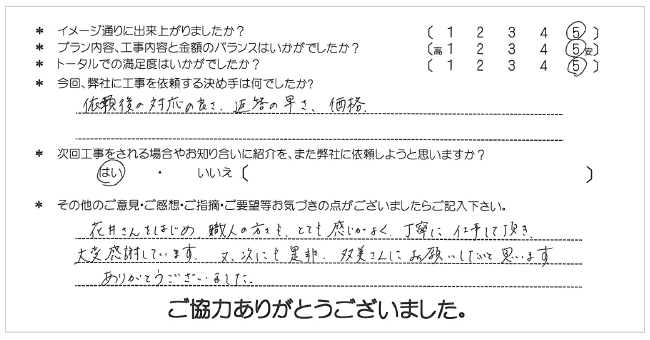 * イメージ通りに出来上がりましたか? ( 1 2 3 4 5 )
* プラン内容、工事内容と金額のバランスはいかがでしたか? (高 1 2 3 4 5 安)
* トータルでの満足度はいかがでしたか? ( 1 2 3 4 5 )
* 今回、弊社に工事を依頼する決め手は何でしたか?
依頼後の対応の良さ、返答の早さ、価格
* 次回工事をされる場合やお知り合いに紹介を、また弊社に依頼しようと思いますか?
はい ・ いいえ ( )
* その他のご意見・ご感想・ご指摘・ご要望等お気づきの点がございましたらご記入下さい。
花井さんをはじめ、職人の方々も、とても感じがよく、丁寧に仕事して頂き、
大変感謝しています。又、次にも是非、双美さんにお願いしたいと思います
ありがとうございました。
ご協力ありがとうございました。